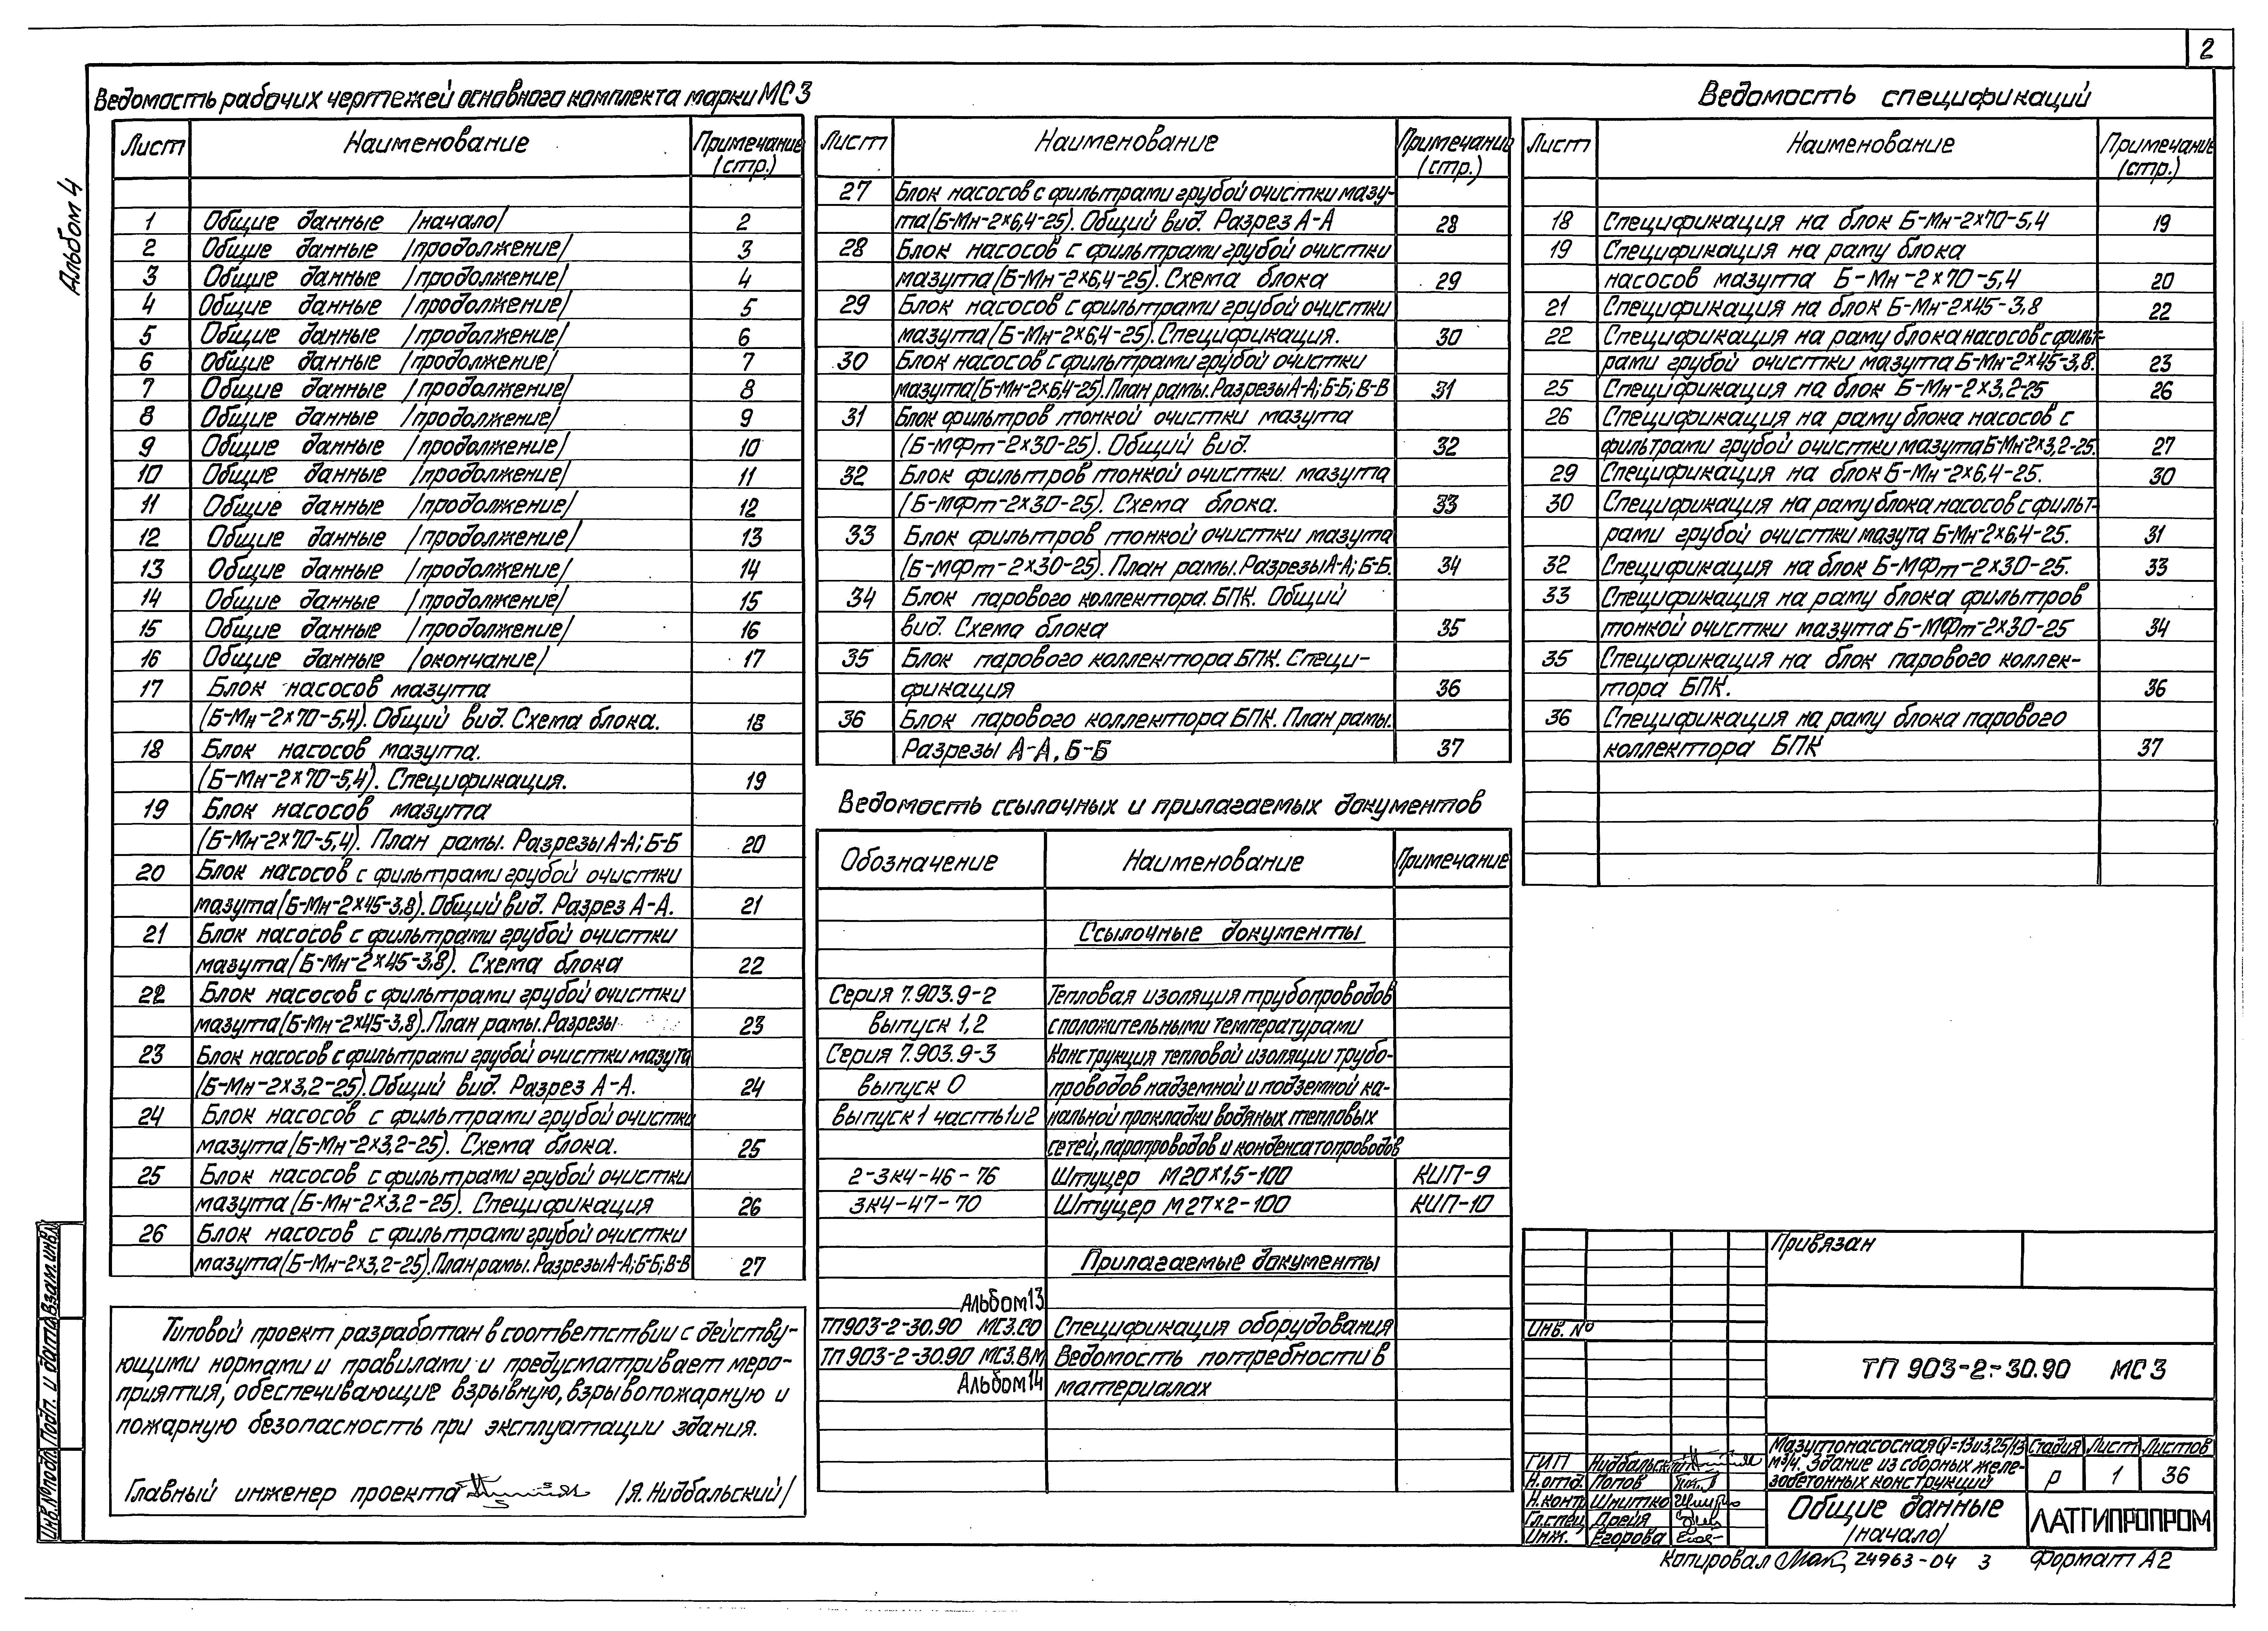 2
Альбом 4
Ведомость рабочих чертежей основного комплекта марки МС3
Лист Наименование Примечание (стр.)
1 Общие данные /начало/ 2
2 Общие данные /продолжение/ 3
3 Общие данные /продолжение/ 4
4 Общие данные /продолжение/ 5
5 Общие данные /продолжение/ 6
6 Общие данные /продолжение/ 7
7 Общие данные /продолжение/ 8
8 Общие данные /продолжение/ 9
9 Общие данные /продолжение/ 10
10 Общие данные /продолжение/ 11
11 Общие данные /продолжение/ 12
12 Общие данные /продолжение/ 13
13 Общие данные /продолжение/ 14
14 Общие данные /продолжение/ 15
15 Общие данные /продолжение/ 16
16 Общие данные /окончание/ 17
17 Блок насосов мазута
(Б-Мн-2×70-5,4). Общий вид. Схема блока. 18
18 Блок насосов мазута.
(Б-Мн-2×70-5,4). Спецификация. 19
19 Блок насосов мазута
(Б-Мн-2×70-5,4). План рамы. Разрезы А-А; Б-Б 20
20 Блок насосов с фильтрами грубой очистки
мазута (Б-Мн-2×45-3,8). Общий вид. Разрез А-А. 21
21 Блок насосов с фильтрами грубой очистки
мазута (Б-Мн-2×45-3,8). Схема блока 22
22 Блок насосов с фильтрами грубой очистки
мазута (Б-Мн-2×45-3,8). План рамы. Разрезы 23
23 Блок насосов с фильтрами грубой очистки мазута
(Б-Мн-2×3,2-25). Общий вид. Разрез А-А. 24
24 Блок насосов с фильтрами грубой очистки
мазута (Б-Мн-2×3,2-25). Схема блока. 25
25 Блок насосов с фильтрами грубой очистки
мазута (Б-Мн-2×3,2-25). Спецификация 26
26 Блок насосов с фильтрами грубой очистки
мазута (Б-Мн-2×3,2-25). План рамы. Разрезы А-А; Б-Б; В-В 27
Типовой проект разработан в соответствии с действу-
ющими нормами и правилами и предусматривает меро-
приятия, обеспечивающие взрывную, взрывопожарную и
пожарную безопасность при эксплуатации здания.
Главный инженер проекта /Я. Нидбальский/
Лист Наименование Примечание (стр.)
27 Блок насосов с фильтрами грубой очистки мазу-
та (Б-Мн-2×6,4-25). Общий вид. Разрез А-А 28
28 Блок насосов с фильтрами грубой очистки
мазута (Б-Мн-2×6,4-25). Схема блока 29
29 Блок насосов с фильтрами грубой очистки
мазута (Б-Мн-2×6,4-25). Спецификация. 30
30 Блок насосов с фильтрами грубой очистки
мазута (Б-Мн-2×6,4-25). План рамы. Разрезы А-А; Б-Б; В-В 31
31 Блок фильтров тонкой очистки мазута
(Б-МФт-2×30-25). Общий вид. 32
32 Блок фильтров тонкой очистки мазута
(Б-МФт-2×30-25). Схема блока. 33
33 Блок фильтров тонкой очистки мазута
(Б-МФт-2×30-25). План рамы. Разрезы А-А; Б-Б. 34
34 Блок парового коллектора. БПК. Общий
вид. Схема блока 35
35 Блок парового коллектора БПК. Специ-
фикация 36
36 Блок парового коллектора БПК. План рамы.
Разрезы А-А, Б-Б 37
Ведомость ссылочных и прилагаемых документов
Обозначение Наименование Примечание
Ссылочные документы
Серия 7.903.9-2 Тепловая изоляция трубопроводов
выпуск 1,2 с положительными температурами
Серия 7.903.9-3 Конструкция тепловой изоляции трубо-
выпуск 0 проводов надземной и подземной ка-
выпуск 1 часть 1 и 2 нальной прокладки водяных тепловых
сетей, паропроводов и конденсатопроводов
2-3К4-46-76 Штуцер М20×1,5-100 КИП-9
3К4-47-70 Штуцер М27×2-100 КИП-10
Прилагаемые документы
Альбом 13
ТП 903-2-30.90 МС3.СО Спецификация оборудования
ТП 903-2-30.90 МС3.ВМ Ведомость потребности в
Альбом 14 материалах
Ведомость спецификаций
Лист Наименование Примечание (стр.)
18 Спецификация на блок Б-Мн-2×70-5,4 19
19 Спецификация на раму блока
насосов мазута Б-Мн-2×70-5,4 20
21 Спецификация на блок Б-Мн-2×45-3,8 22
22 Спецификация на раму блока насосов с фильт-
рами грубой очистки мазута Б-Мн-2×45-3,8. 23
25 Спецификация на блок Б-Мн-2×3,2-25 26
26 Спецификация на раму блока насосов с
фильтрами грубой очистки мазута Б-Мн-2×3,2-25. 27
29 Спецификация на блок Б-Мн-2×6,4-25. 30
30 Спецификация на раму блока насосов с фильт-
рами грубой очистки мазута Б-Мн-2×6,4-25. 31
32 Спецификация на блок Б-МФт-2×30-25. 33
33 Спецификация на раму блока фильтров
тонкой очистки мазута Б-МФт-2×30-25 34
35 Спецификация на блок парового коллек-
тора БПК. 36
36 Спецификация на раму блока парового
коллектора БПК 37
Привязан
Инв. №
ТП 903-2-30.90 МС3
Мазутонасосная Q=13 и 3,25/13
м³/ч. Здание из сборных желе-
зобетонных конструкций
Стадия Лист Листов
Р 1 36
ГИП Нидбальский
Н.отд. Попов
Н.контр Шнитко
Гл.спец Дрейя
Инж. Егорова
Общие данные
/начало/
ЛАТГИПРОПРОМ
Копировал 24963-04 3 Формат А2
Инв.№подл. Подп. и дата Взам.инв.№